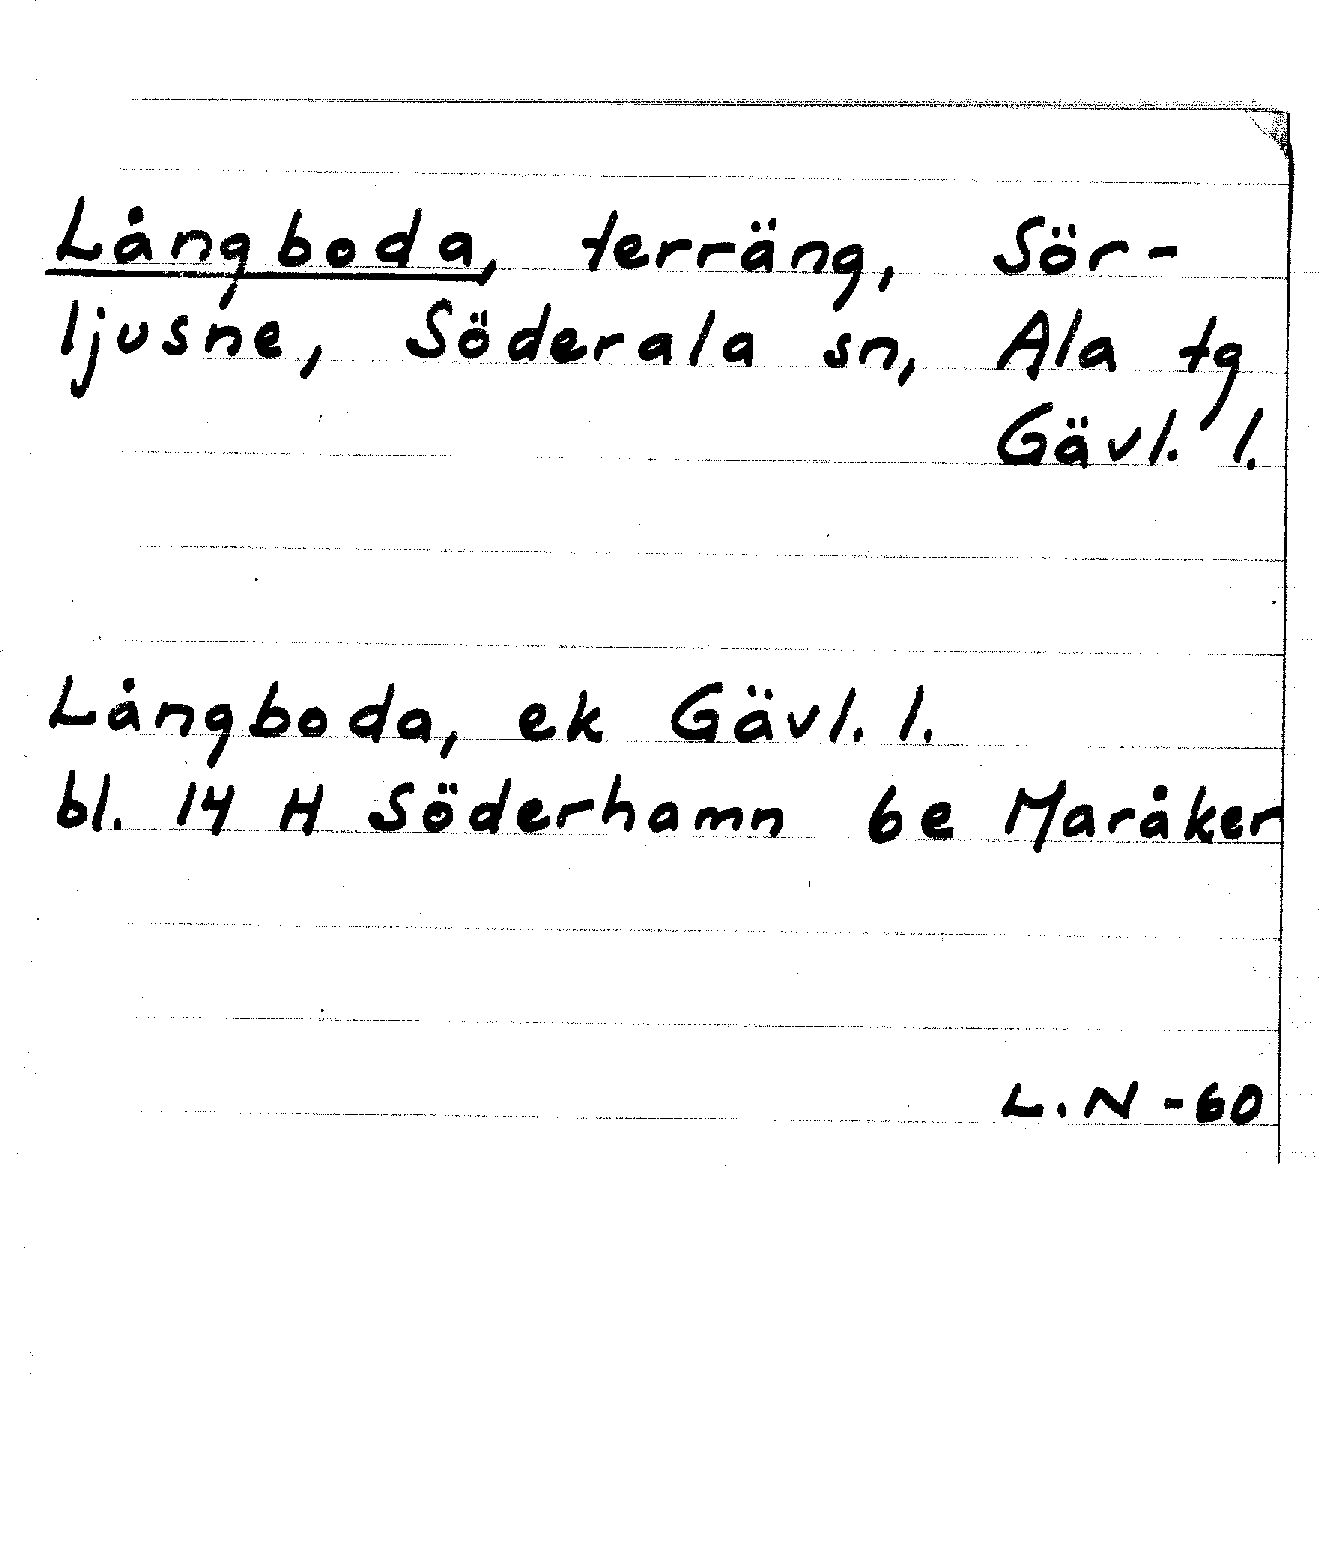 Långboda, terräng, Sör-
ljusne, Söderala sn, Ala tg
Gävl. l.
Långboda, ek Gävl. l.
bl. 14 H Söderhamn 6e Maråker
L.N -60